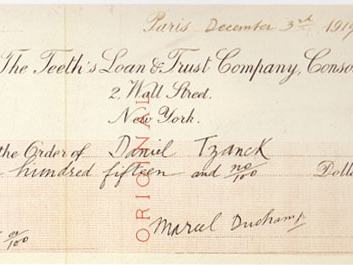 Paris December 3rd 1919
The Teeth's Loan & Trust Company, Conso
2, Wall Street.
New York.
the Order of Daniel Tzanck
hundred fifteen and no/100 Dolla
ORIGINAL
Marcel Duchamp
00/100